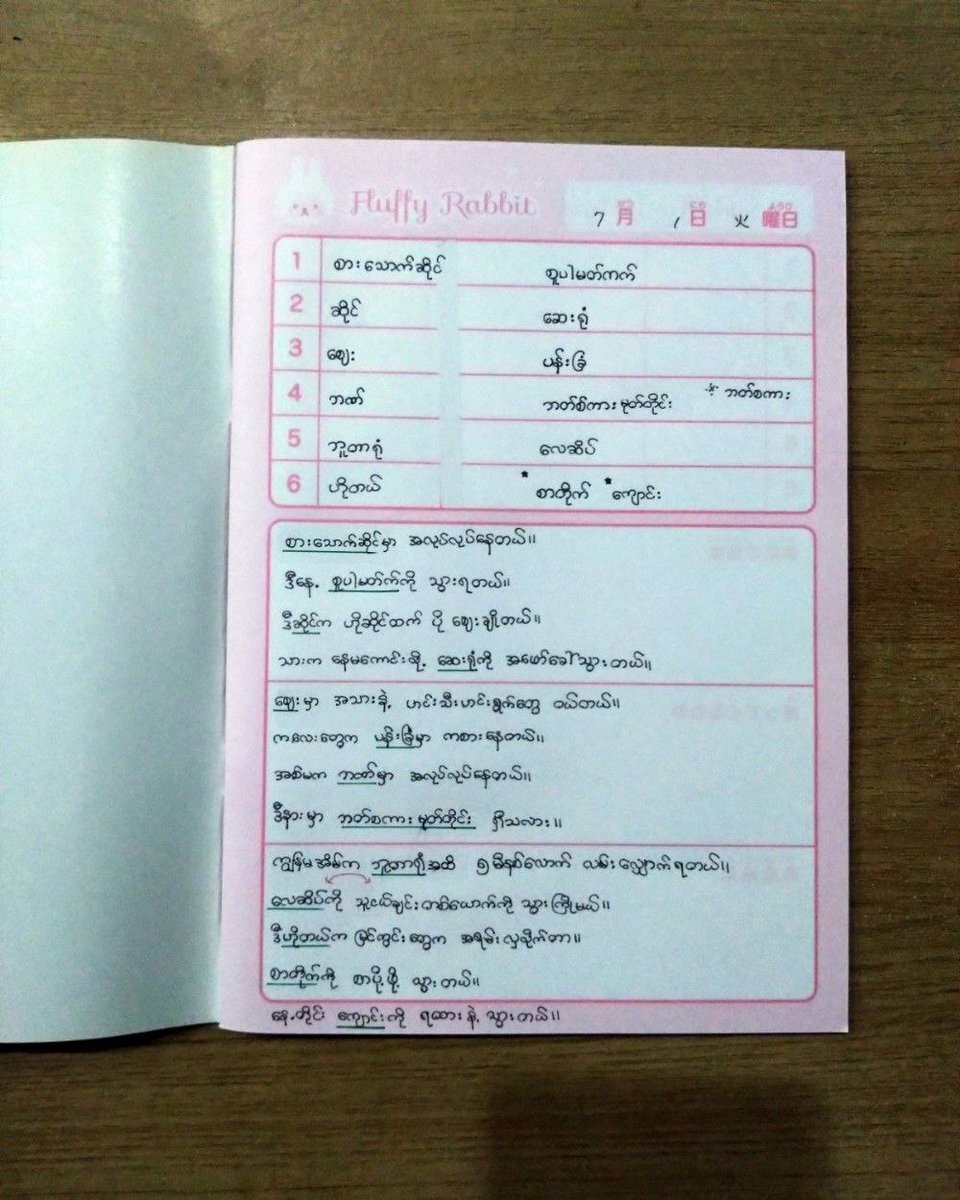 Fluffy Rabbit 7 月 1 日 火 曜日
1 စားသောက်ဆိုင် စူပါမတ်ကက်
2 ဆိုင် ဆေးရုံ
3 ဈေး ပန်းခြံ
4 ဘဏ် ဘတ်စ်ကားမှတ်တိုင် ဘတ်စကား
5 ဘူတာရုံ လေဆိပ်
6 ဟိုတယ် စာတိုက် ကျောင်း
စားသောက်ဆိုင်မှာ အလုပ်လုပ်နေတယ်။
ဒီနေ့ စူပါမတ်က်ကို သွားရတယ်။
ဒီဆိုင်က ဟိုဆိုင်ထက် ပို ဈေးချိုတယ်။
သားက နေမကောင်းလို့ ဆေးရုံကို အဖော်ခေါ်သွားတယ်။
ဈေးမှာ အသားနဲ့ ဟင်းသီးဟင်းရွက်တွေ ဝယ်တယ်။
ကလေးတွေက ပန်းခြံမှာ ကစားနေတယ်။
အစ်မက ဘဏ်မှာ အလုပ်လုပ်နေတယ်။
ဒီနားမှာ ဘတ်စကားမှတ်တိုင် ရှိသလား။
ကျွန်မအိမ်က ဘူတာရုံအထိ ၅ မိနစ်လောက် လမ်းလျှောက်ရတယ်။
လေဆိပ်ကို သူငယ်ချင်းတစ်ယောက်ကို သွားကြိုမယ်။
ဒီဟိုတယ်က မြင်ကွင်းတွေက အရမ်းလှလိုက်တာ။
စာတိုက်ကို စာပို့ဖို့ သွားတယ်။
နေ့တိုင်း ကျောင်းကို ရထားနဲ့ သွားတယ်။